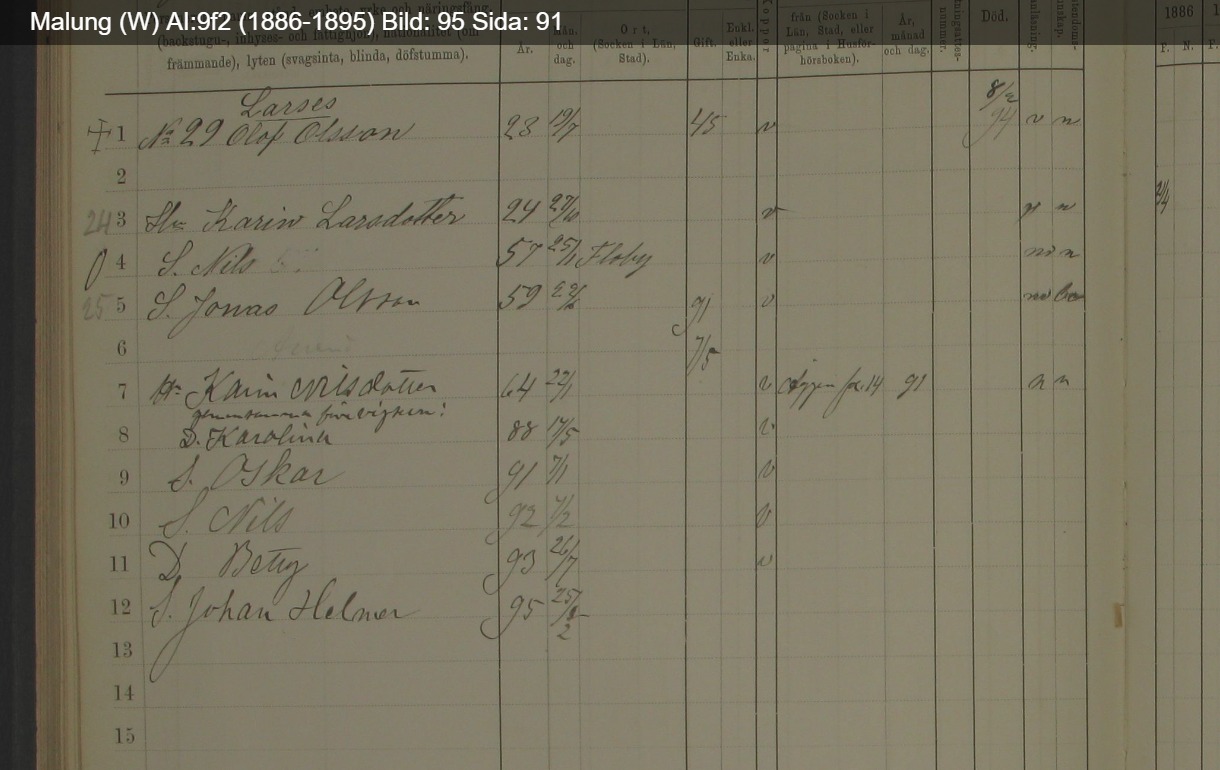 Malung (W) AI:9f2 (1886-1895) Bild: 95 Sida: 91
(backstugu-, inhyses- och fattighjon), nationalitet (om
främmande), lyten (svagsinta, blinda, döfstumma).
År.
Mån. och dag.
Ort,
(Socken i Län,
Stad).
Gift.
Enkl.
eller
Enka.
Koppor
från (Socken i
Län, Stad, eller
pagina i Husför-
hörsboken).
År,
månad
och dag.
nummer.
Död.
1886
F. N. F.
Larses
1 No 29 Olof Olsson 23 19/7 45 v 8/2 94 v n
2
24 3 Hu Karin Larsdotter 24 v n
4 S. Nils 57 25/1 Floby v n
25 5 S. Jonas Olsson 59 91 v
6 7/5
7 Hu Karin Nilsdotter 64 22/1 v 14 91 n n
8 D. Karolina 88 17/5 v
9 S. Oskar 91 7/1 v
10 S. Nils 92 7/2 v
11 D. Betty 93 26/7 v
12 S. Johan Helmer 95
13
14
15